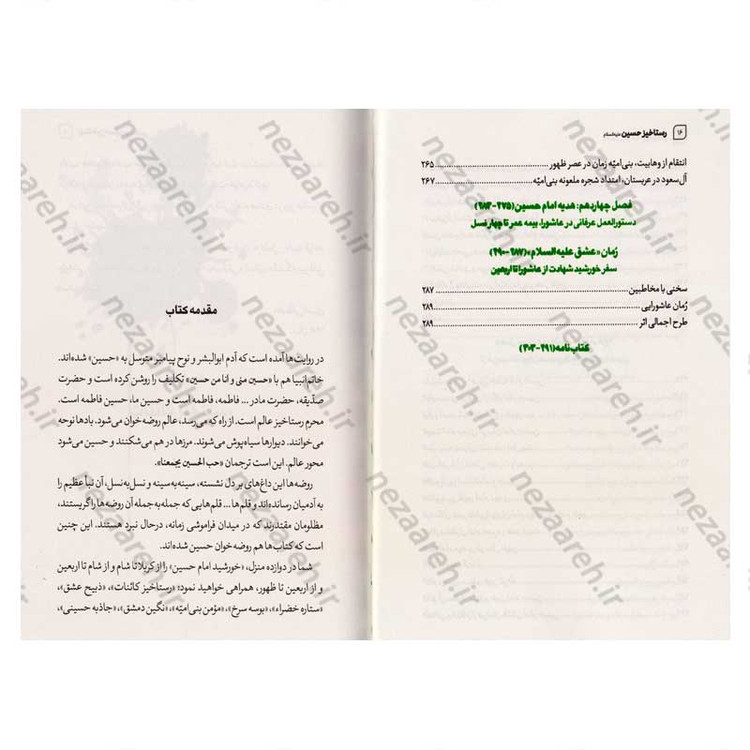 ۱۶ رستاخیز حسین علیه‌السلام
انتقام از وهابیت، بنی‌امیّه زمان در عصر ظهور ۲۶۵
آل‌سعود در عربستان، امتداد شجره ملعونه بنی‌امیّه ۲۶۷
فصل چهاردهم: هدیه امام حسین (۲۷۵-۲۸۳)
دستورالعمل عرفانی در عاشورا، بیمه عمر تا چهار نسل
رُمان «عشق علیه‌السلام» (۲۸۷-۲۹۰)
سفر خورشید شهادت از عاشورا تا اربعین
سخنی با مخاطبین ۲۸۷
رُمان عاشورایی ۲۸۹
طرح اجمالی اثر ۲۸۹
کتاب‌نامه (۲۹۱-۳۰۳)
مقدمه کتاب
در روایت‌ها آمده است که آدم ابوالبشر و نوح پیامبر متوسل به «حسین» شده‌اند.
خاتم انبیا هم با «حسین منی و انا من حسین» تکلیف را روشن کرده است و حضرت
صدّیقه، حضرت مادر ... فاطمه، فاطمه است و حسین ما، حسین فاطمه است.
محرم رستاخیز عالم است. از راه که می‌رسد، عالم روضه‌خوان می‌شود. بادها نوحه
می‌خوانند. دیوارها سیاه‌پوش می‌شوند. مرزها در هم می‌شکنند و حسین می‌شود
محور عالم. این است ترجمان «حب الحسین یجمعنا».
روضه‌ها این داغ‌های بر دل نشسته، سینه‌به‌سینه و نسل‌به‌نسل، آن نبأ عظیم را
به آدمیان رسانده‌اند و قلم‌ها ... قلم‌هایی که جمله‌به‌جمله آن روضه‌ها را گریستند،
مظلومان مقتدرند که در میدان فراموشی زمانه، درحال نبرد هستند. این چنین
است که کتاب‌ها هم روضه‌خوان حسین شده‌اند.
شما در دوازده منزل، «خورشید امام حسین» را از کربلا تا شام و از شام تا اربعین
و از اربعین تا ظهور، همراهی خواهید نمود: «رستاخیز کائنات»، «ذبیح عشق»،
«ستاره خضراء»، «بوسه سرخ»، «مؤمن بنی‌امیّه»، «نگین دمشق»، «جاذبه حسینی»،
nezaareh.ir